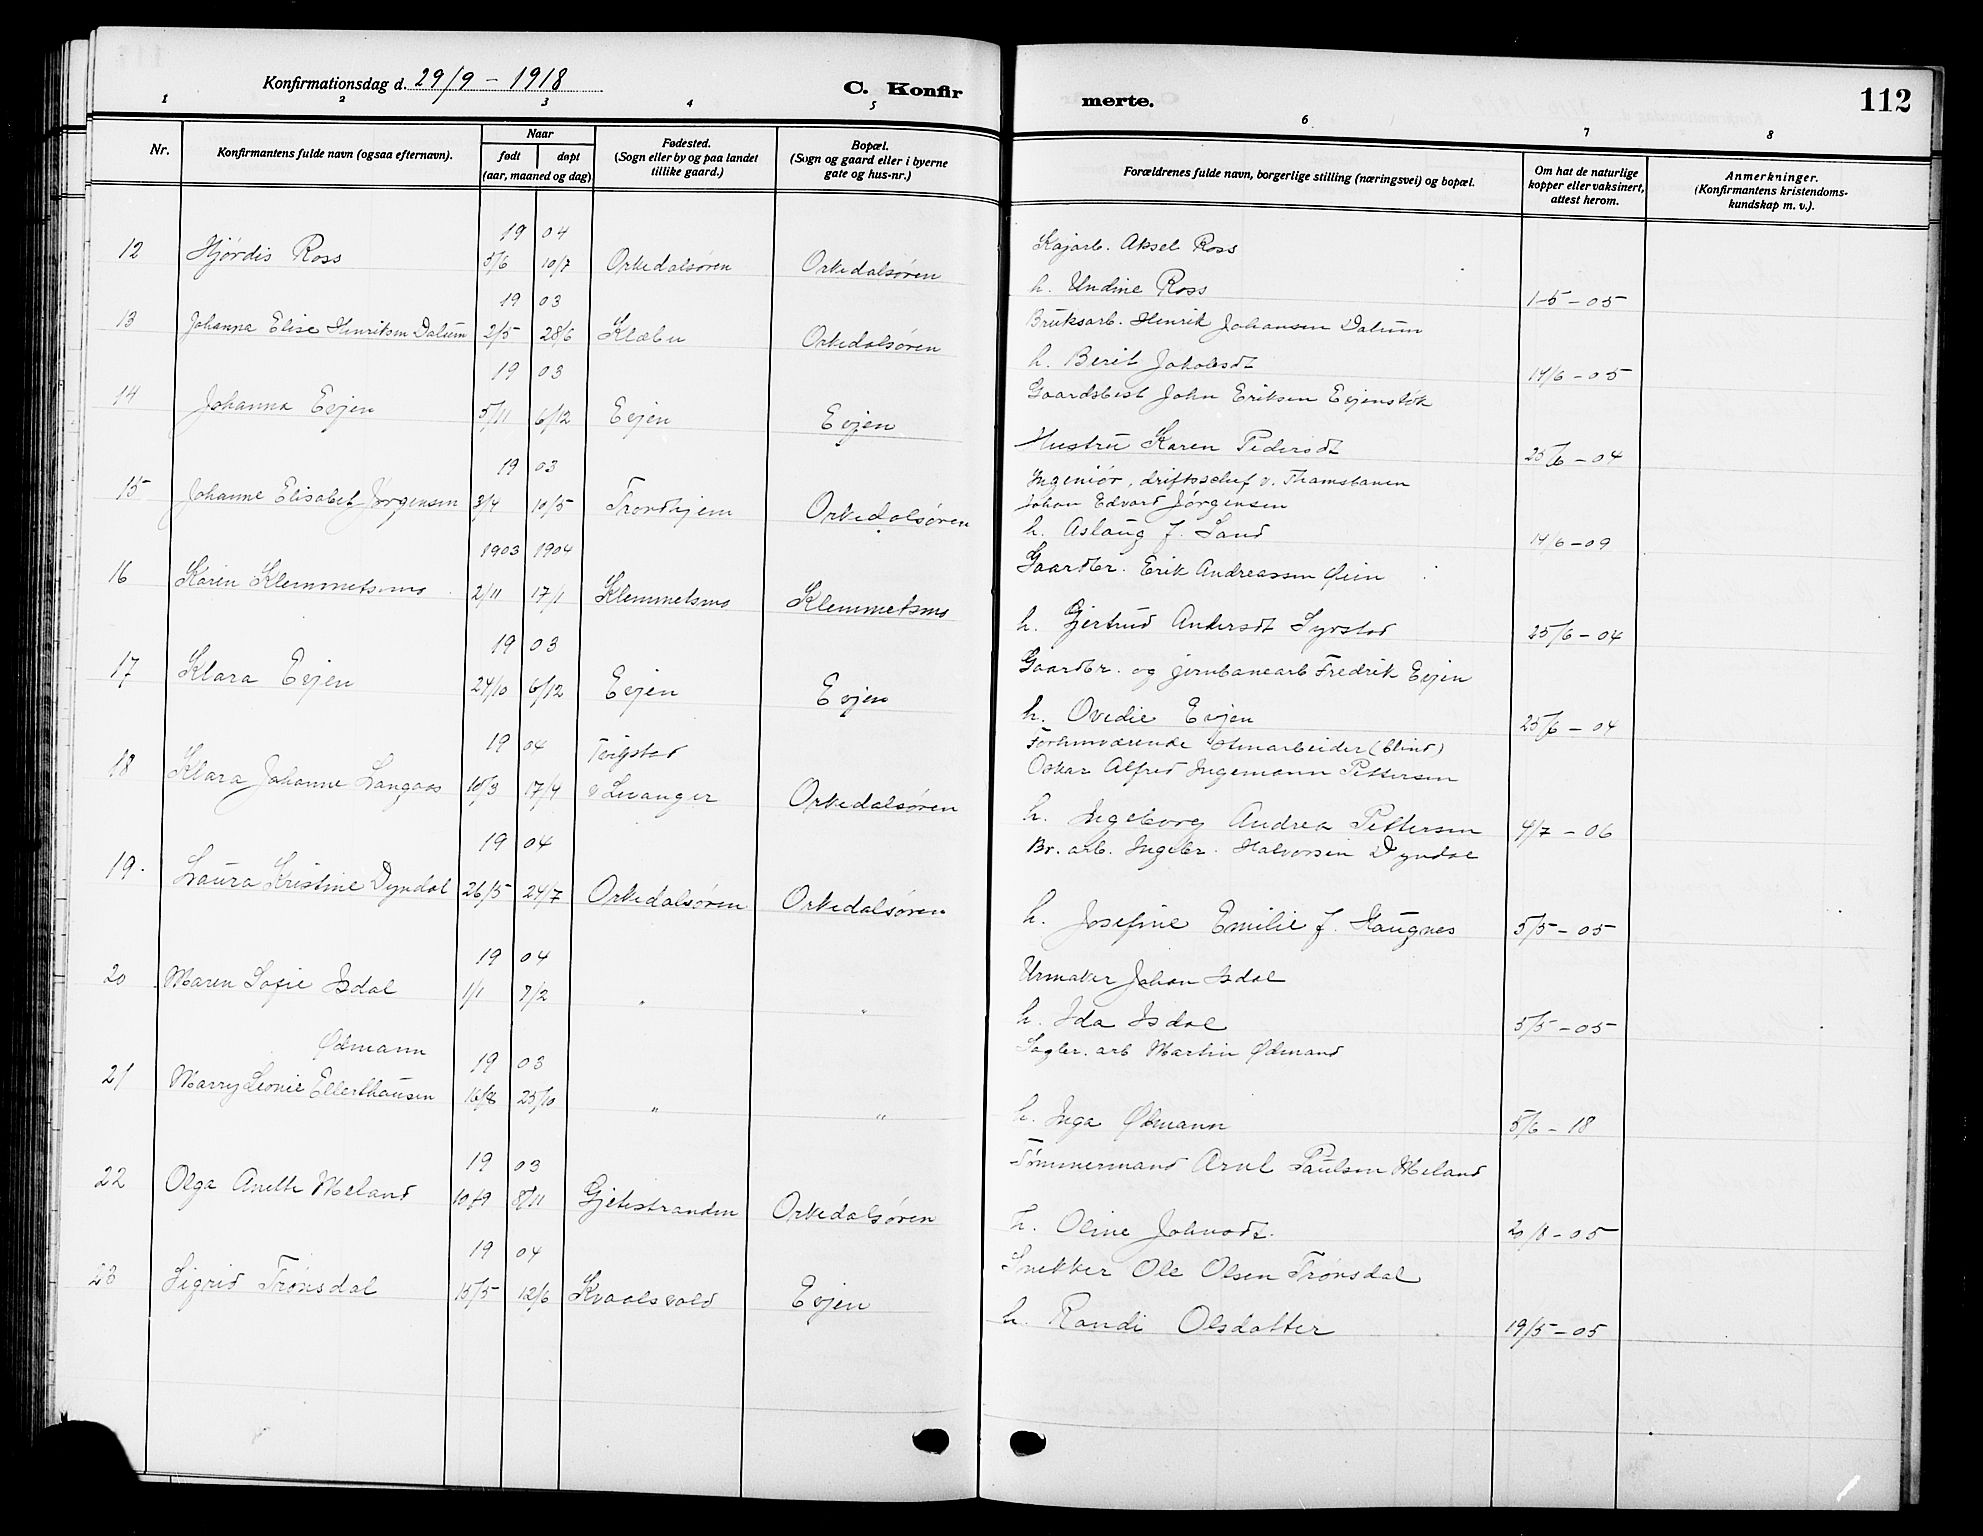 Konfirmationsdag d. 29/9 - 1918
C. Konfirmerte.
112
1 2 3 4 5 6 7 8
Nr.
Konfirmantens fulde navn (ogsaa efternavn).
Naar
født døpt
(aar, maaned og dag)
Fødested.
(Sogn eller by og paa landet
tillike gaard.)
Bopæl.
(Sogn og gaard eller i byerne
gate og hus-nr.)
Forældrenes fulde navn, borgerlige stilling (næringsvei) og bopæl.
Om hat de naturlige
kopper eller vaksinert,
attest herom.
Anmerkninger.
(Konfirmantens kristendoms-
kundskap m. v.).
19 04
12 Hjørdis Ross 3/6 10/7 Orkedalsøren Orkedalsøren
Kajarb. Aksel Ross
h. Undine Ross 1-5-05
19 03
13 Johanna Elise Henriksen Dalum 2/5 28/6 Klæbu Orkedalsøren
Bruksarb. Henrik Johansen Dalum
h. Berit 14/6-05
19 03
14 Johanna Evjen 5/11 6/12 Evjen Evjen
Gaardsbest John Eriksen Evjensløk
Hustru Karen Pedersdt 25/6-04
19 03
15 Johanne Elisabet Jørgensen 3/4 10/5 Trondhjem Orkedalsøren
Ingeniør, driftsschef v. Thamsbanen
Johan Edvard Jørgensen
h. Aslaug f. Sand 14/6-09
1903 1904
16 Karen Klemmetsmo 2/11 17/1 Klemmetsmo Klemmetsmo
Gaardbr. Erik Andreassen Øien
h. Gjertrud Andersdt Syrstad 25/6-04
19 03
17 Klara Evjen 24/10 6/12 Evjen Evjen
Gaardbr. og jernbanearb Fredrik Evjen
h. Ovedie Evjen 25/6-04
19 04
18 Klara Johanne Langaas 10/3 17/4 v Levanger Orkedalsøren
Forhenværende stenarbeider (blind)
Oskar Alfred Ingemann Pettersen
h. Ingeborg Andrea Pettersen 4/7-06
19 04
19. Laura Kristine Dyndal 26/5 24/7 Orkedalsøren Orkedalsøren
Br. arb. Ingebr. Halvorsen Dyndal
h. Josefine Emilie f. Haugnes 5/5-05
19 04
20 Maren Sofie Isdal 1/1 7/2 " "
Urmaker Johan Isdal
h. Ida Isdal 5/5-05
Ødmann
19 03
21 Marry Leonie Ellerthausen 16/8 25/10 " "
Sagbr. arb Martin Ødmand
h. Inga Ødmann 5/6-18
19 03
22 Olga Anette Meland 10/9 8/11 Gjetestranden Orkedalsøren
Tømmermand Arnt Paulsen Meland
h. Oline Johnsdt. 20/8-05
19 04
23 Sigrid Trønsdal 15/5 12/6 Kvaalsvold Evjen
Snekker Ole Olsen Trønsdal
h. Randi Olsdatter 19/5-05